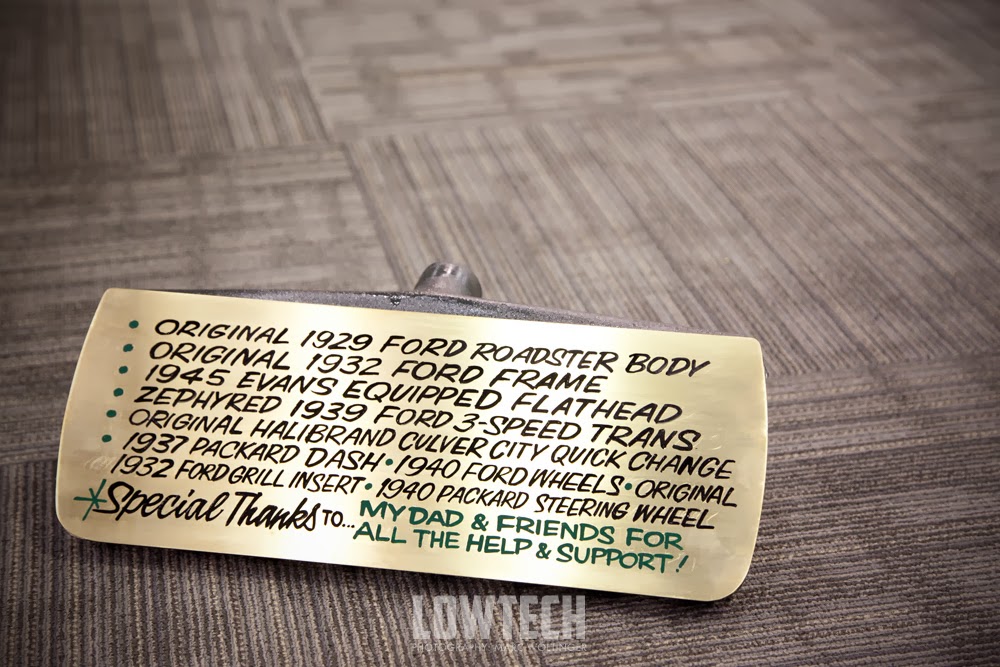 • ORIGINAL 1929 FORD ROADSTER BODY
• ORIGINAL 1932 FORD FRAME
• 1945 EVANS EQUIPPED FLATHEAD
• ZEPHYRED 1939 FORD 3-SPEED TRANS
• ORIGINAL HALIBRAND CULVER CITY QUICK CHANGE
• 1937 PACKARD DASH • 1940 FORD WHEELS • ORIGINAL
1932 FORD GRILL INSERT • 1940 PACKARD STEERING WHEEL
* Special Thanks TO... MY DAD & FRIENDS FOR
ALL THE HELP & SUPPORT!
LOWTECH
PHOTOGRAPHY